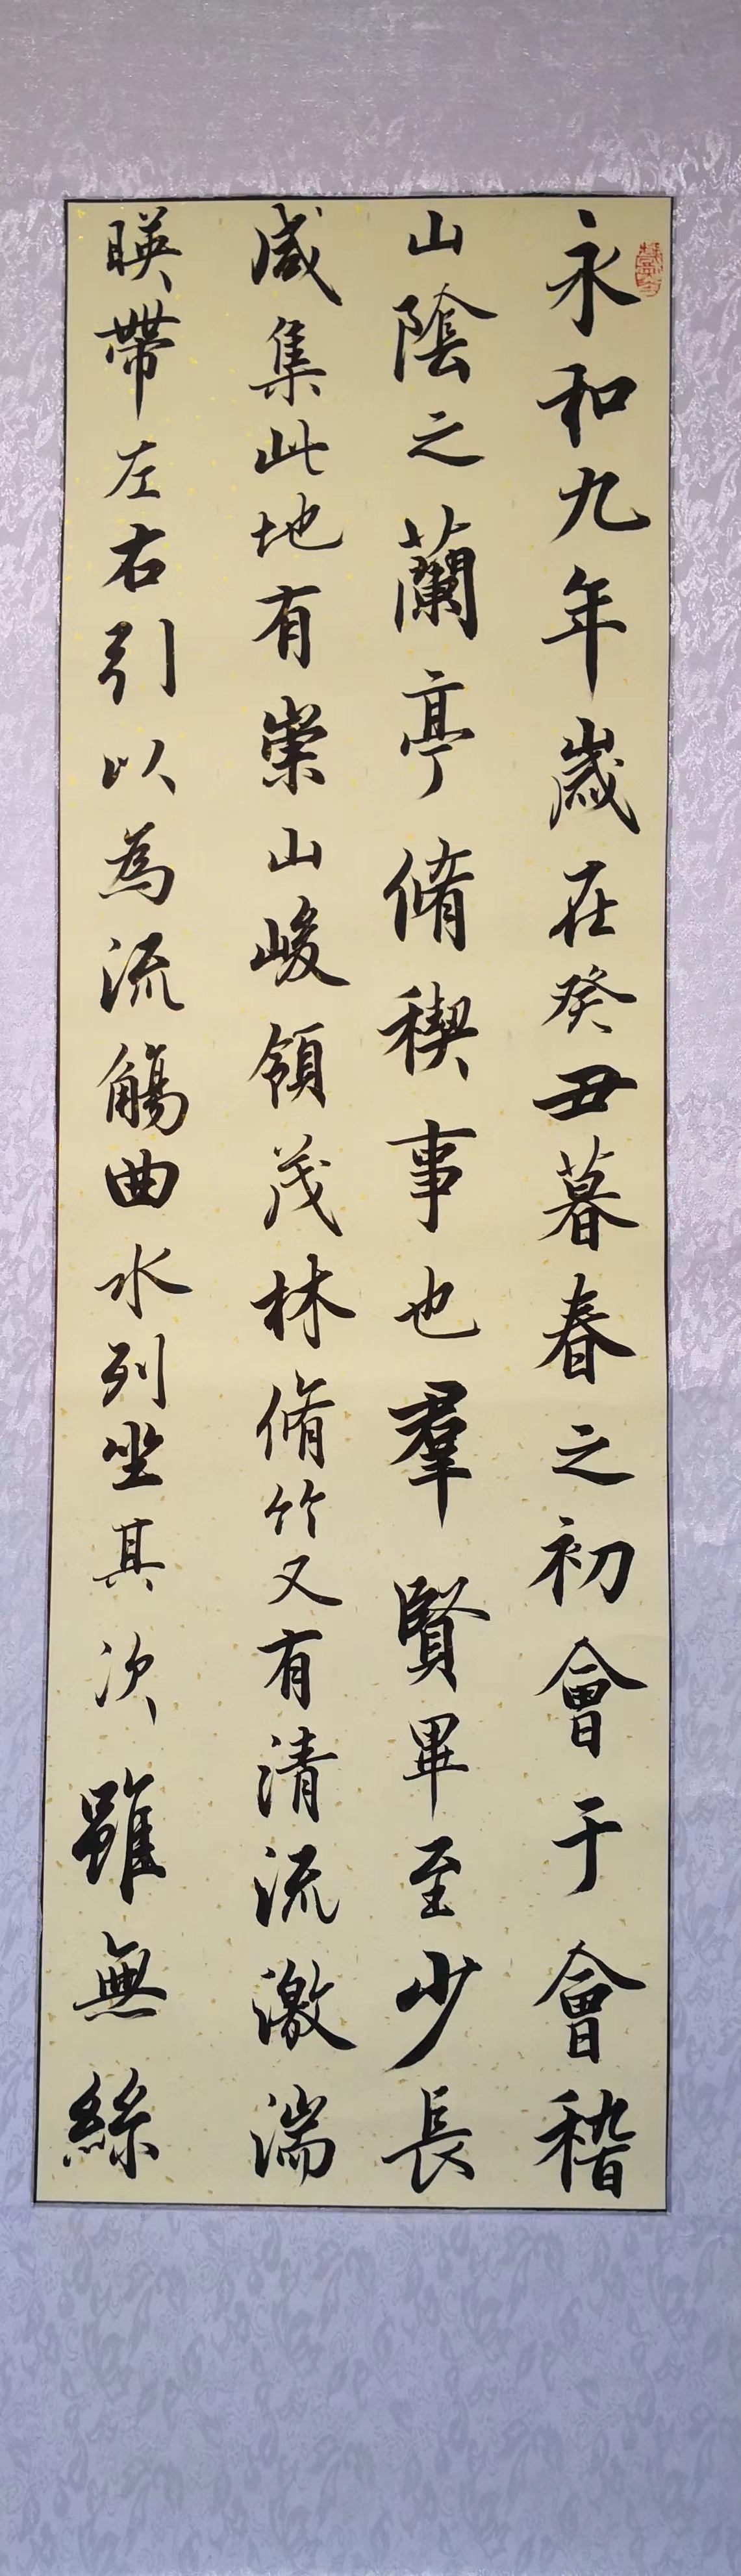 永和九年歲在癸丑暮春之初會于會稽
山陰之蘭亭脩稧事也羣賢畢至少長
咸集此地有崇山峻領茂林脩竹又有清流激湍
暎帶左右引以為流觴曲水列坐其次雖無絲